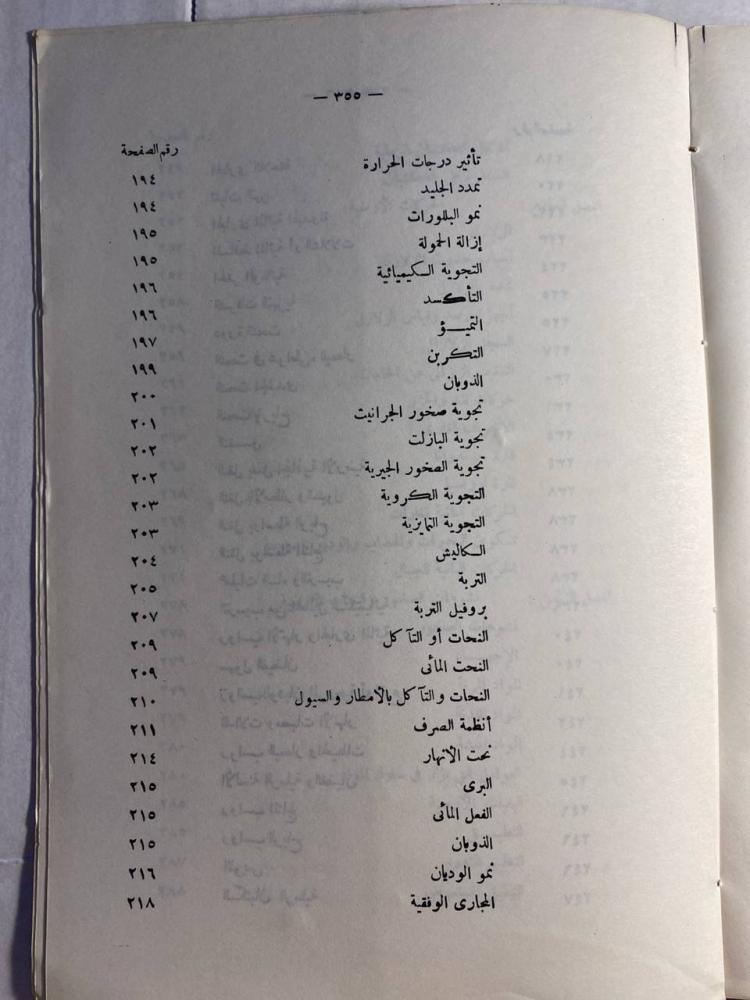 — ٣٥٥ —
رقم الصفحة
تأثير درجات الحرارة ١٩٤
تمدد الجليد ١٩٤
نمو البللورات ١٩٥
إزالة الحمولة ١٩٥
التجوية الكيميائية ١٩٦
التأكسد ١٩٦
التميـؤ ١٩٧
التكربن ١٩٩
الذوبان ٢٠٠
تجوية صخور الجرانيت ٢٠١
تجوية البازلت ٢٠٢
تجوية الصخور الجيرية ٢٠٢
التجوية الكروية ٢٠٣
التجوية التمايزية ٢٠٣
الكاليش ٢٠٤
التربة ٢٠٥
بروفيل التربة ٢٠٧
النحات أو التآكل ٢٠٩
النحت المائى ٢٠٩
النحات والتآكل بالأمطار والسيول ٢١٠
أنظمة الصرف ٢١١
نحت الأنهار ٢١٤
البرى ٢١٥
الفعل المائى ٢١٥
الذوبان ٢١٥
نمو الوديان ٢١٦
المجارى الوفقية ٢١٨